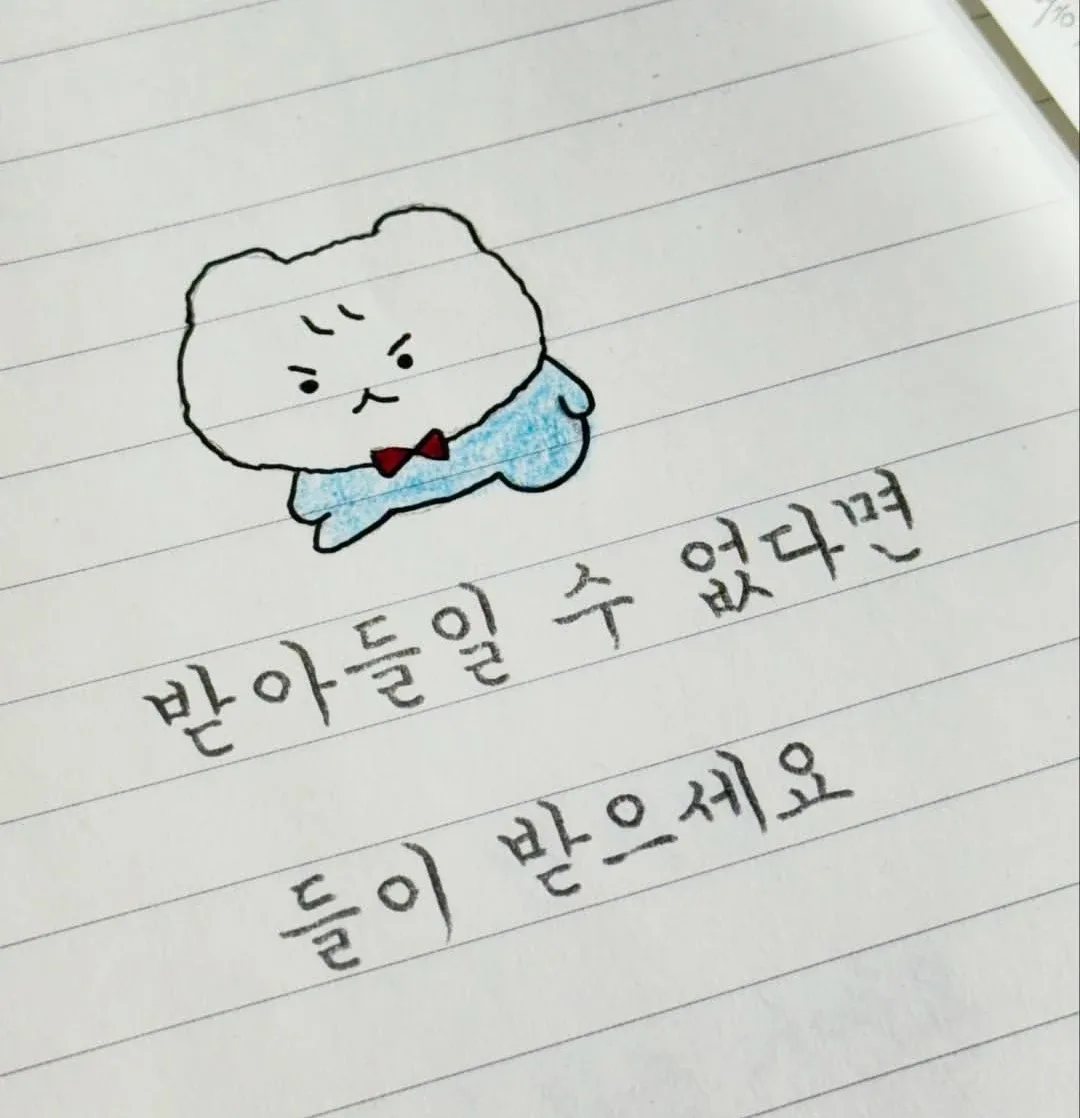 받아들일 수 없다면
들이 받으세요